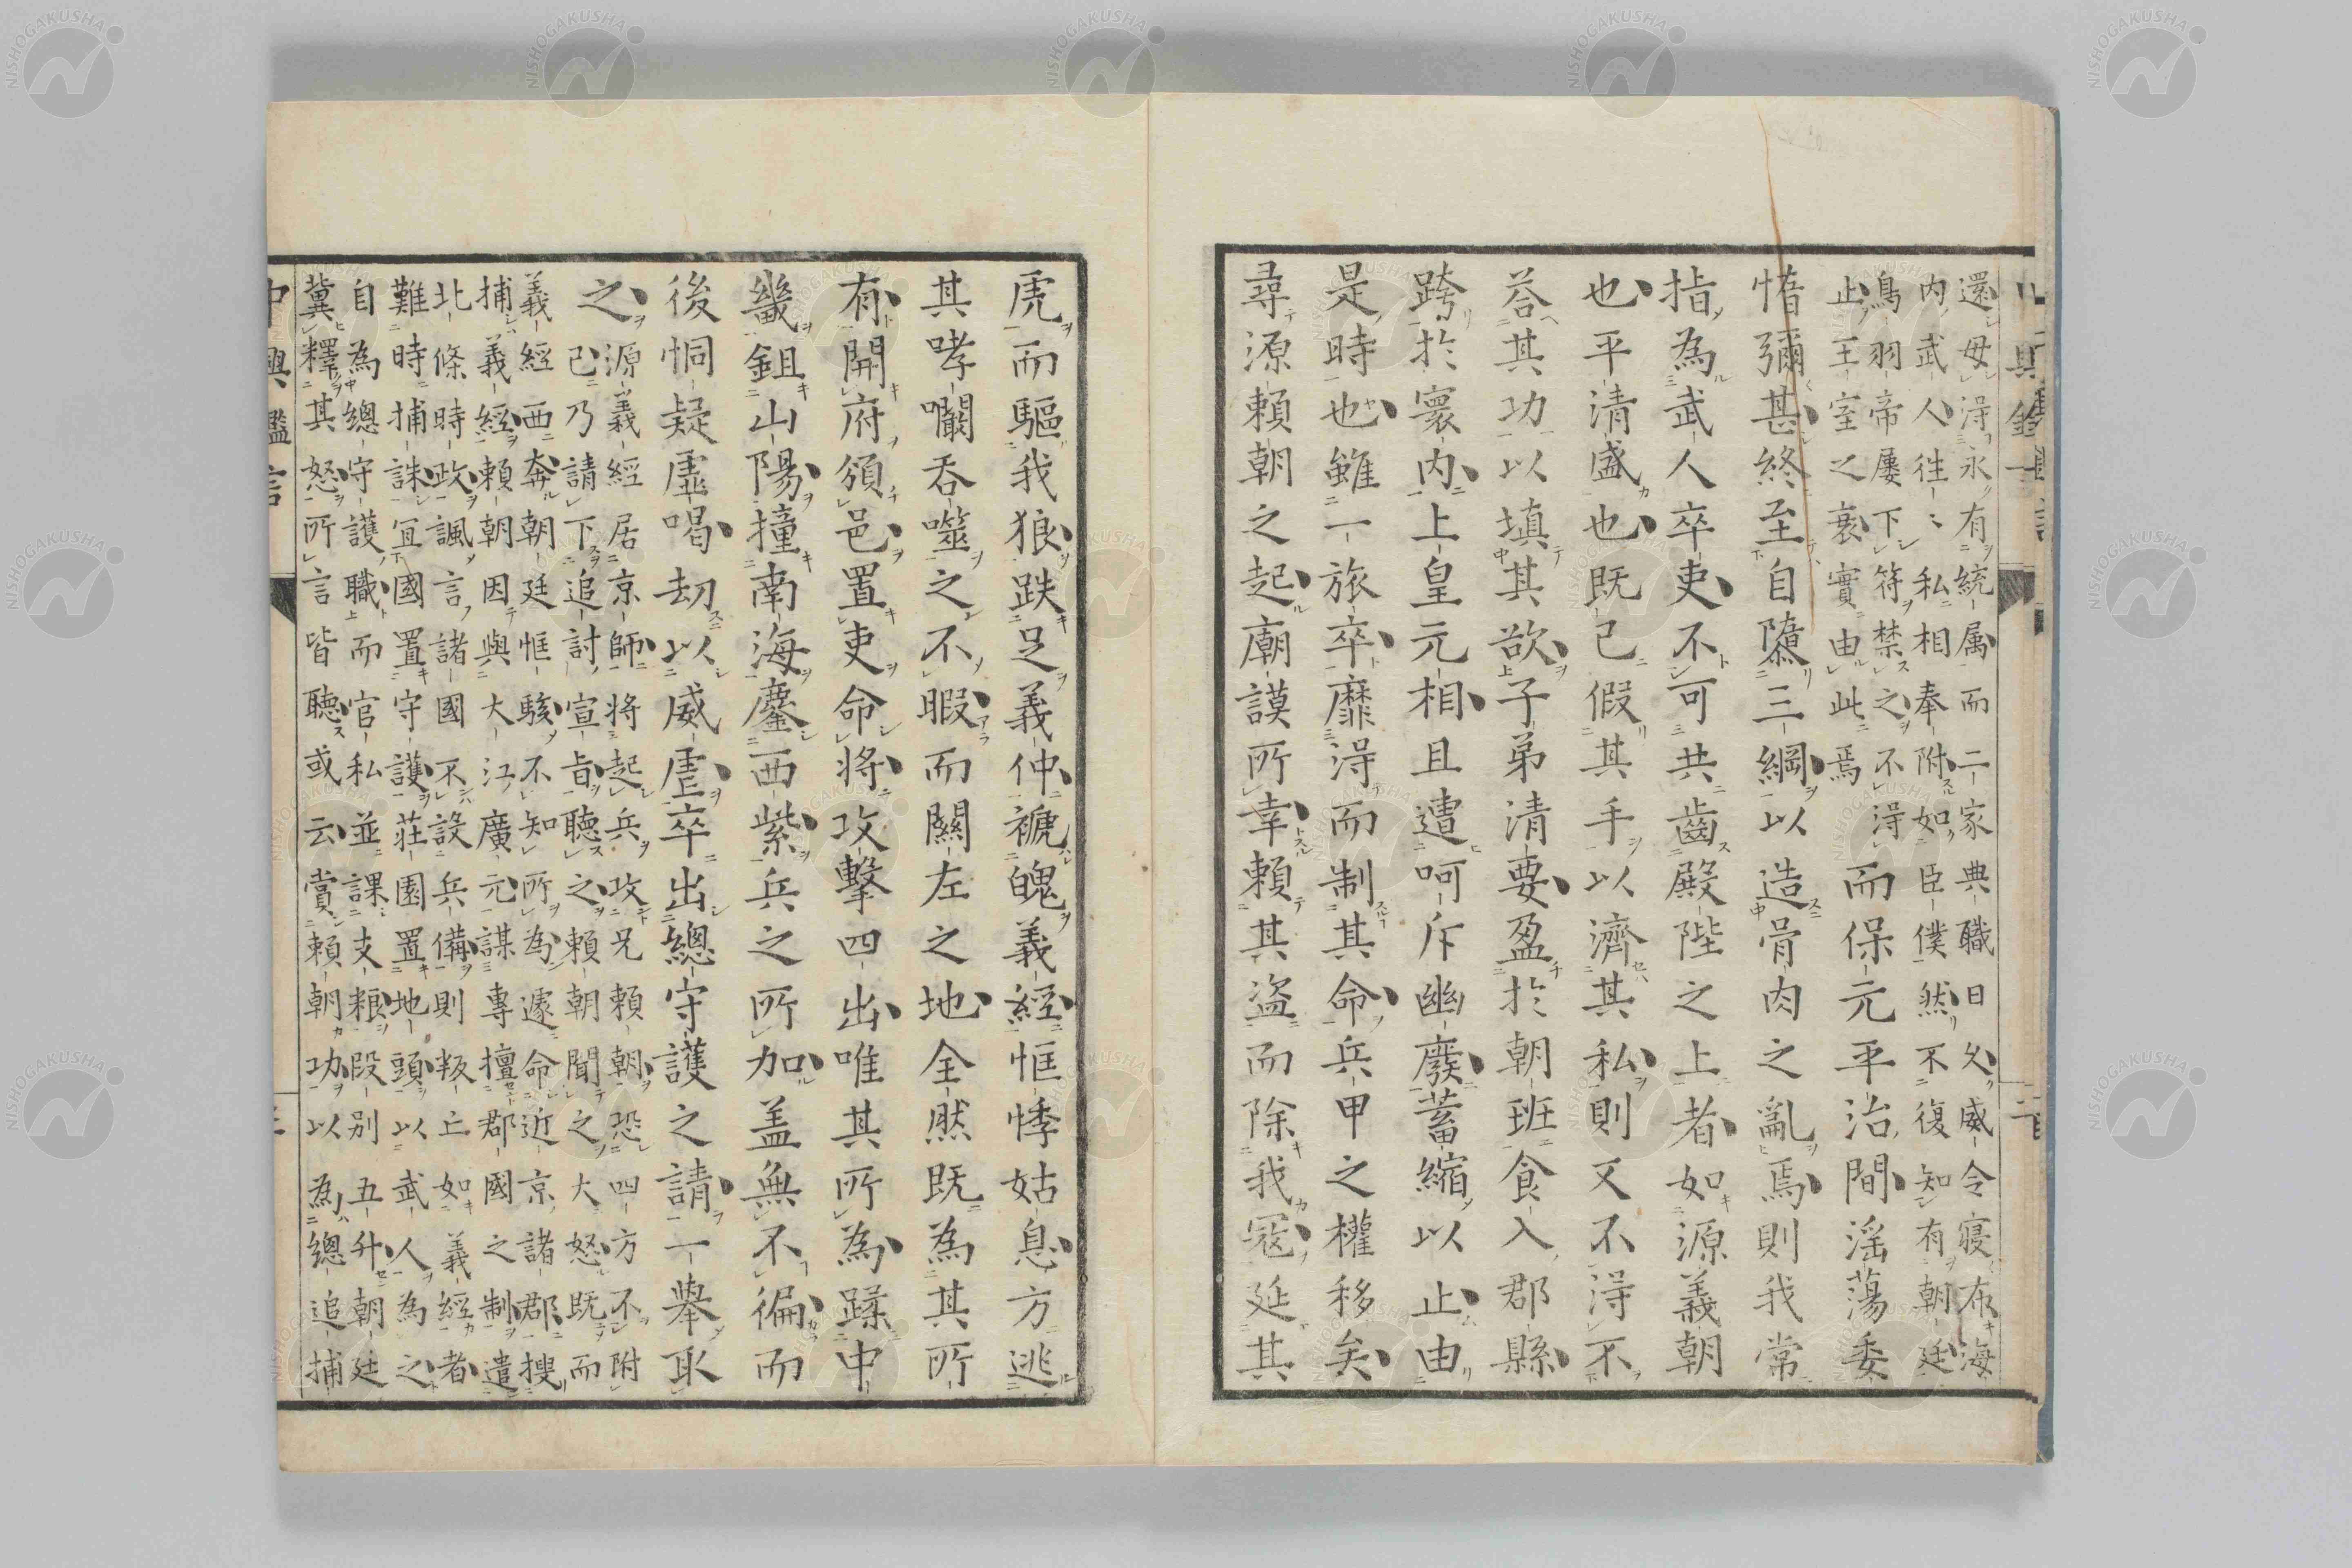 還毋得永有統属而二家典職日久威令寝布海
内武人往〻私相奉附如臣僕然不復知有朝廷
鳥羽帝屢下符禁之不得
止王室之衰實由此焉
而保元平治間滛蕩委
惰彌甚終至自隳三綱以造骨肉之亂焉則我常
指為武人卒吏不可共齒殿陛之上者如源義朝
也平清盛也既已假其手以濟其私則又不得不
荅其功以填其欲子弟清要盈於朝班食入郡縣
跨於寰内上皇元相且遭呵斥幽廢蓄縮以止由
是時也雖一旅卒靡得而制其命兵甲之權移矣
尋源頼朝之起廟謨所幸頼其盗而除我冦延其
虎而驅我狼跌足義仲褫魄義經恇悸姑息方逃
其哮㘚呑噬之不暇而關左之地全然既為其所
有開府頒邑置吏命将攻撃四出唯其所為蹂中
畿鉏山陽撞南海鏖西紫兵之所加盖無不徧而
後恫疑虚喝刧以威虐卒出總守護之請一舉取
之
源義經居京師将起兵攻兄頼朝恐四方不附
己乃請下追討宣旨聴之頼朝聞之大怒既而
義經西奔朝廷恇駭不知所為遽命近京諸郡搜
捕義經頼朝因與大江廣元謀專擅郡國之制遣
北條時政諷言諸國不設兵備則叛亡如義經者
難時捕誅冝國置守護莊園置地頭以武人為之
自為總守護職而官私並課支粮段别五升朝廷
冀釋其怒所言皆聴或云賞頼朝功以為總追捕
中興鑑言